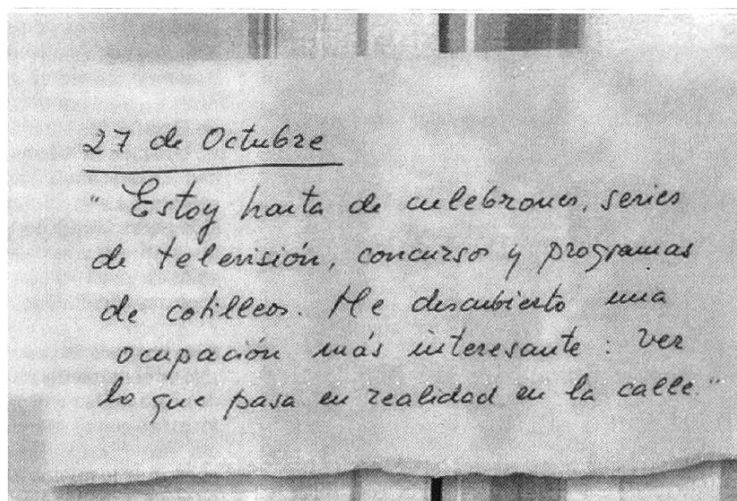 27 de Octubre
"Estoy harta de culebrones, series
de televisión, concursos y programas
de cotilleos. He descubierto una
ocupación más interesante: ver
lo que pasa en realidad en la calle."